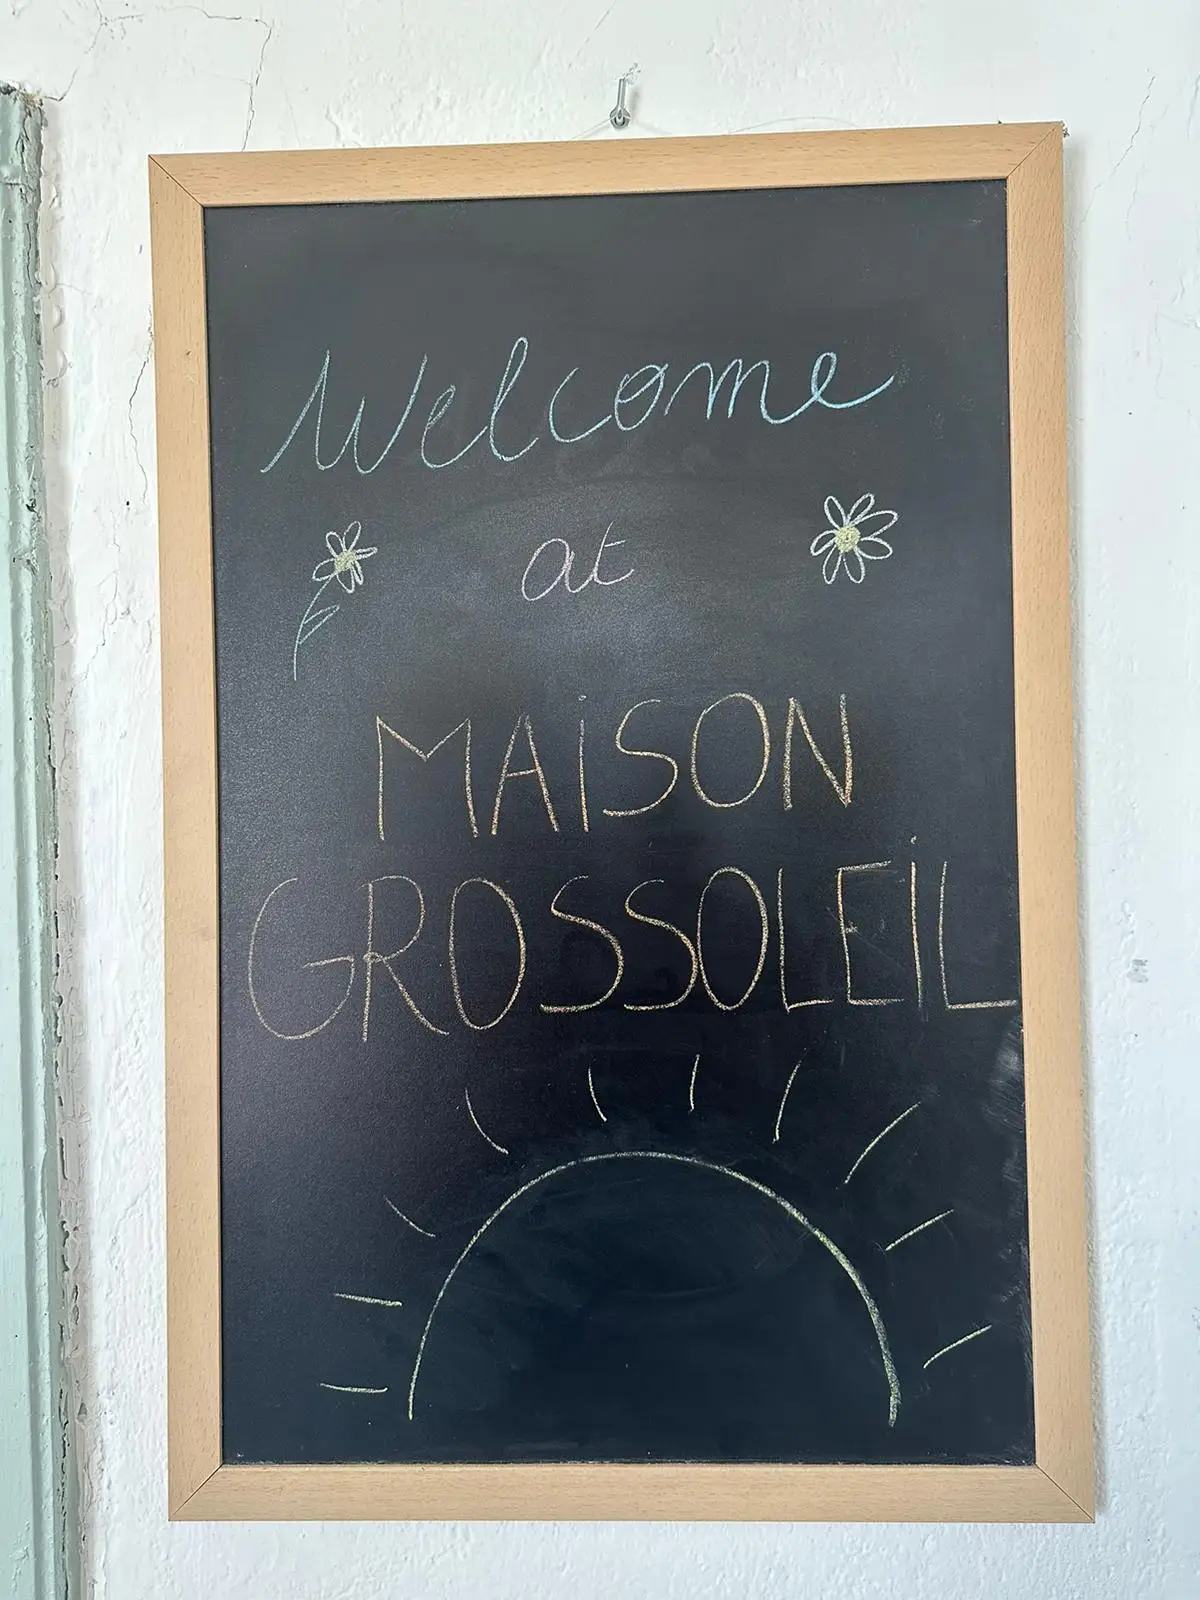 Welcome
at
MAiSON
GROSSOLEiL